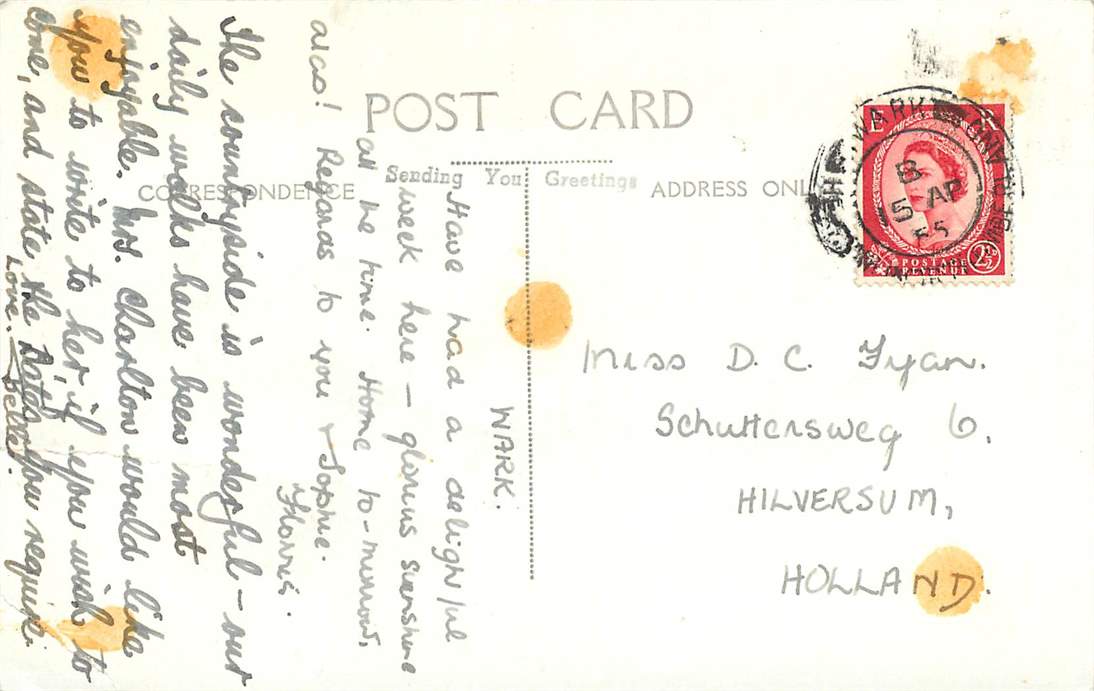 POST CARD
CORRESPONDENCE
Sending You Greetings
ADDRESS ONL
WARK.
Have had a delightful
week here – glorious sunshine
all the time. Home to-morrow,
alas! Regards to you & Sophie.
Florris.
The countryside is wonderful – our
daily walks have been most
enjoyable. Mrs. Charlton would like
you to write to her, if you wish to
come, and state the Dates you require.
Love.
WARK
B
5 AP
55
POSTAGE
REVENUE
2½D
Miss D. C. Fyan.
Schuttersweg 6,
HILVERSUM,
HOLLAND.